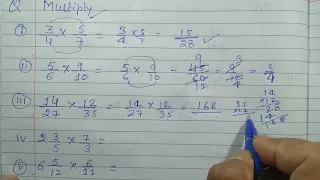 Q Multiply
i) 3/4 × 5/7 = 3/4 × 5/7 = 15/28 ✓
ii) 5/6 × 9/10 = 5/6 × 9/10 = 45/60 = 3/4
12
iii) 14/27 × 12/35 = 14/27 × 12/35 = 168 35 14
×12 28
168
iv 2 3/5 × 7/3 =
v) 6 5/12 × 6/11 =